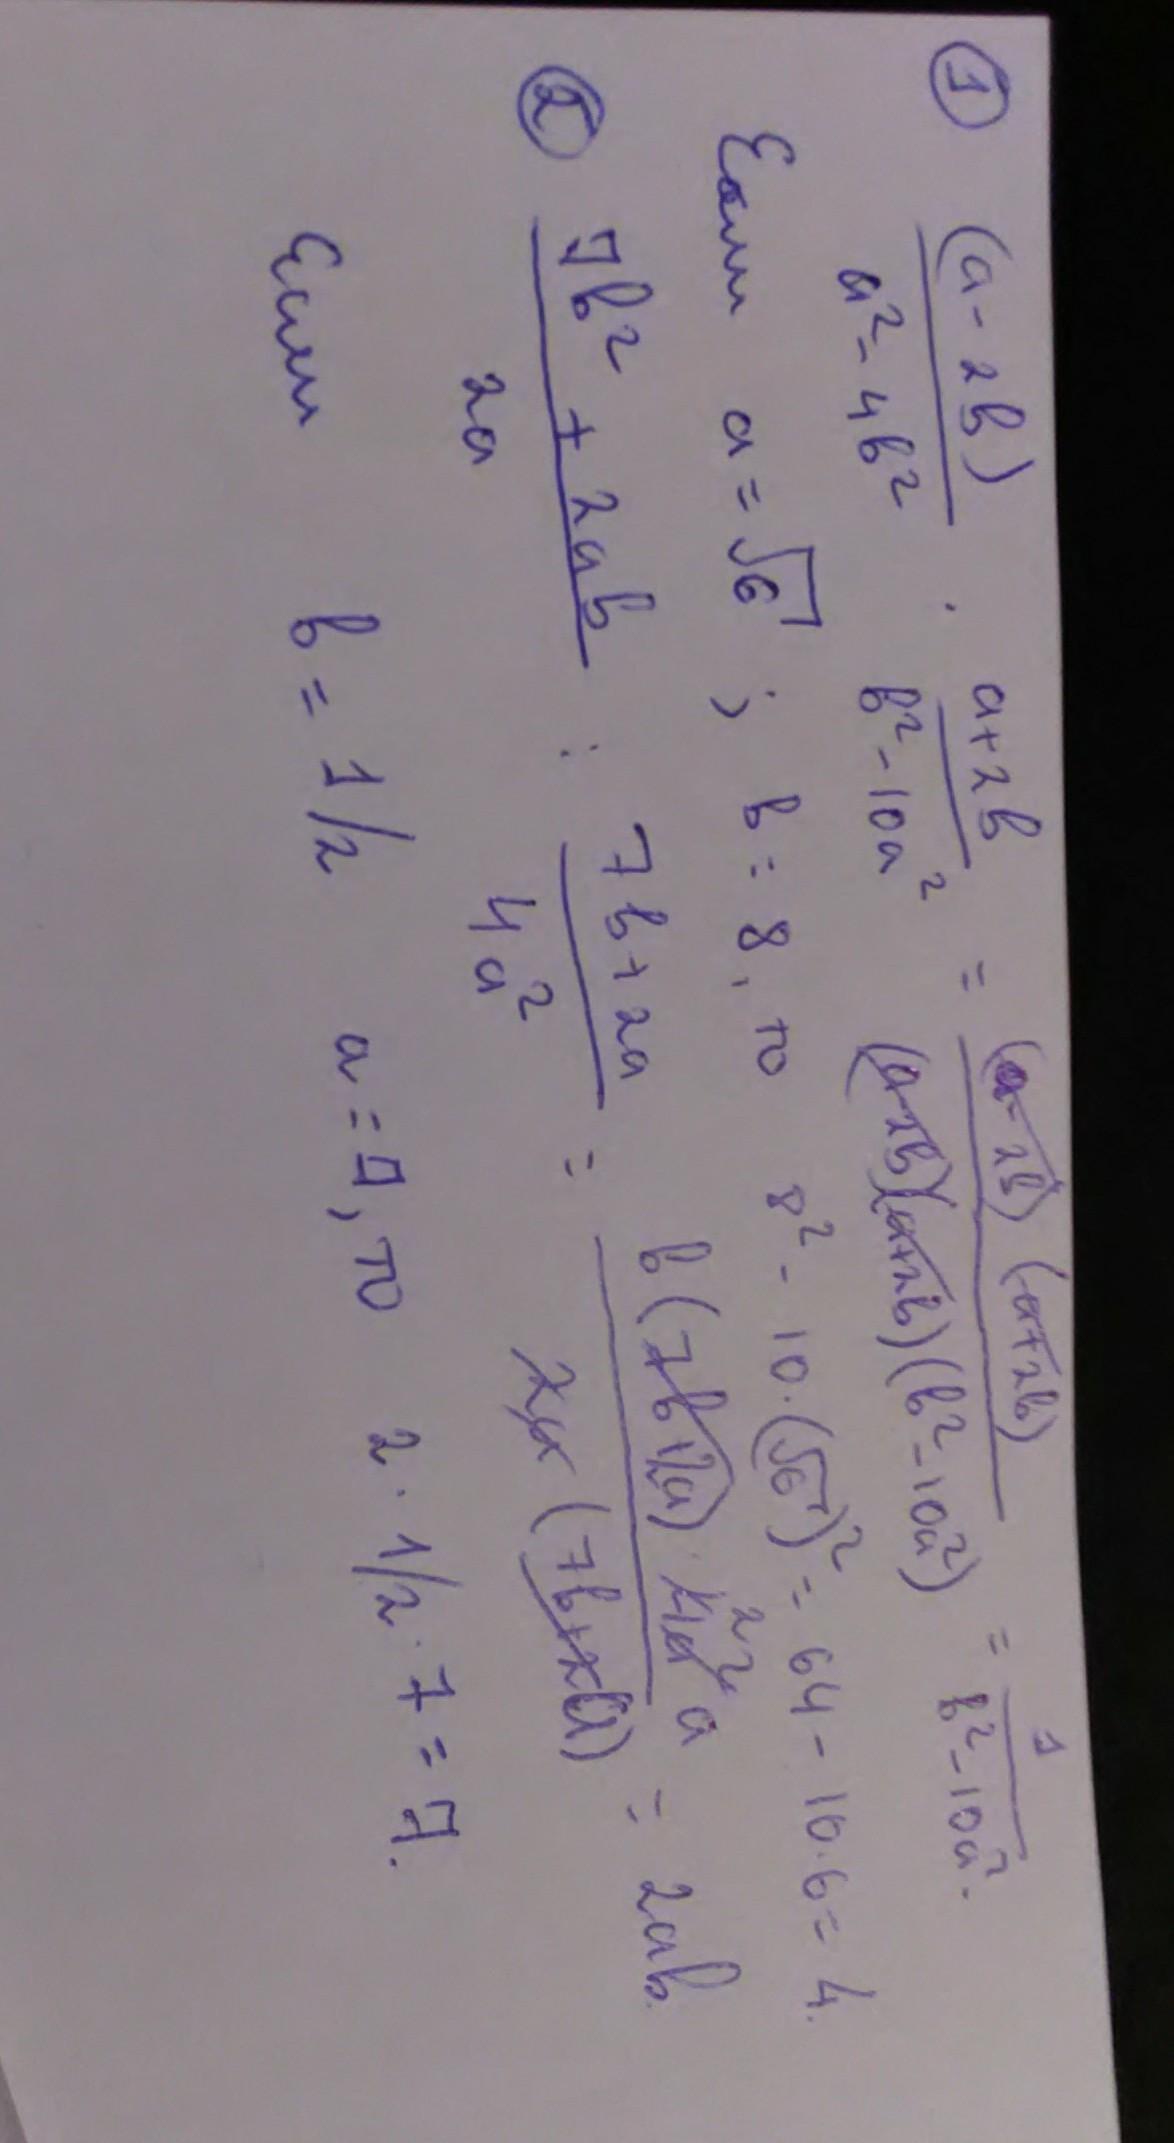 ① (a-2b)/(a²-4b²) · (a+2b)/(b²-10a²) = (a-2b)(a+2b)/((a-2b)(a+2b)(b²-10a²)) = 1/(b²-10a²).
Если a=√6 ; b=8, то 8²-10·(√6)²=64-10·6=4.
② (7b²+2ab)/(2a) : (7b+2a)/(4a²) = b(7b+2a)·4a² 2 a/(2a(7b+2a)) = 2ab.
Если b=1/2 a=7, то 2·1/2·7=7.